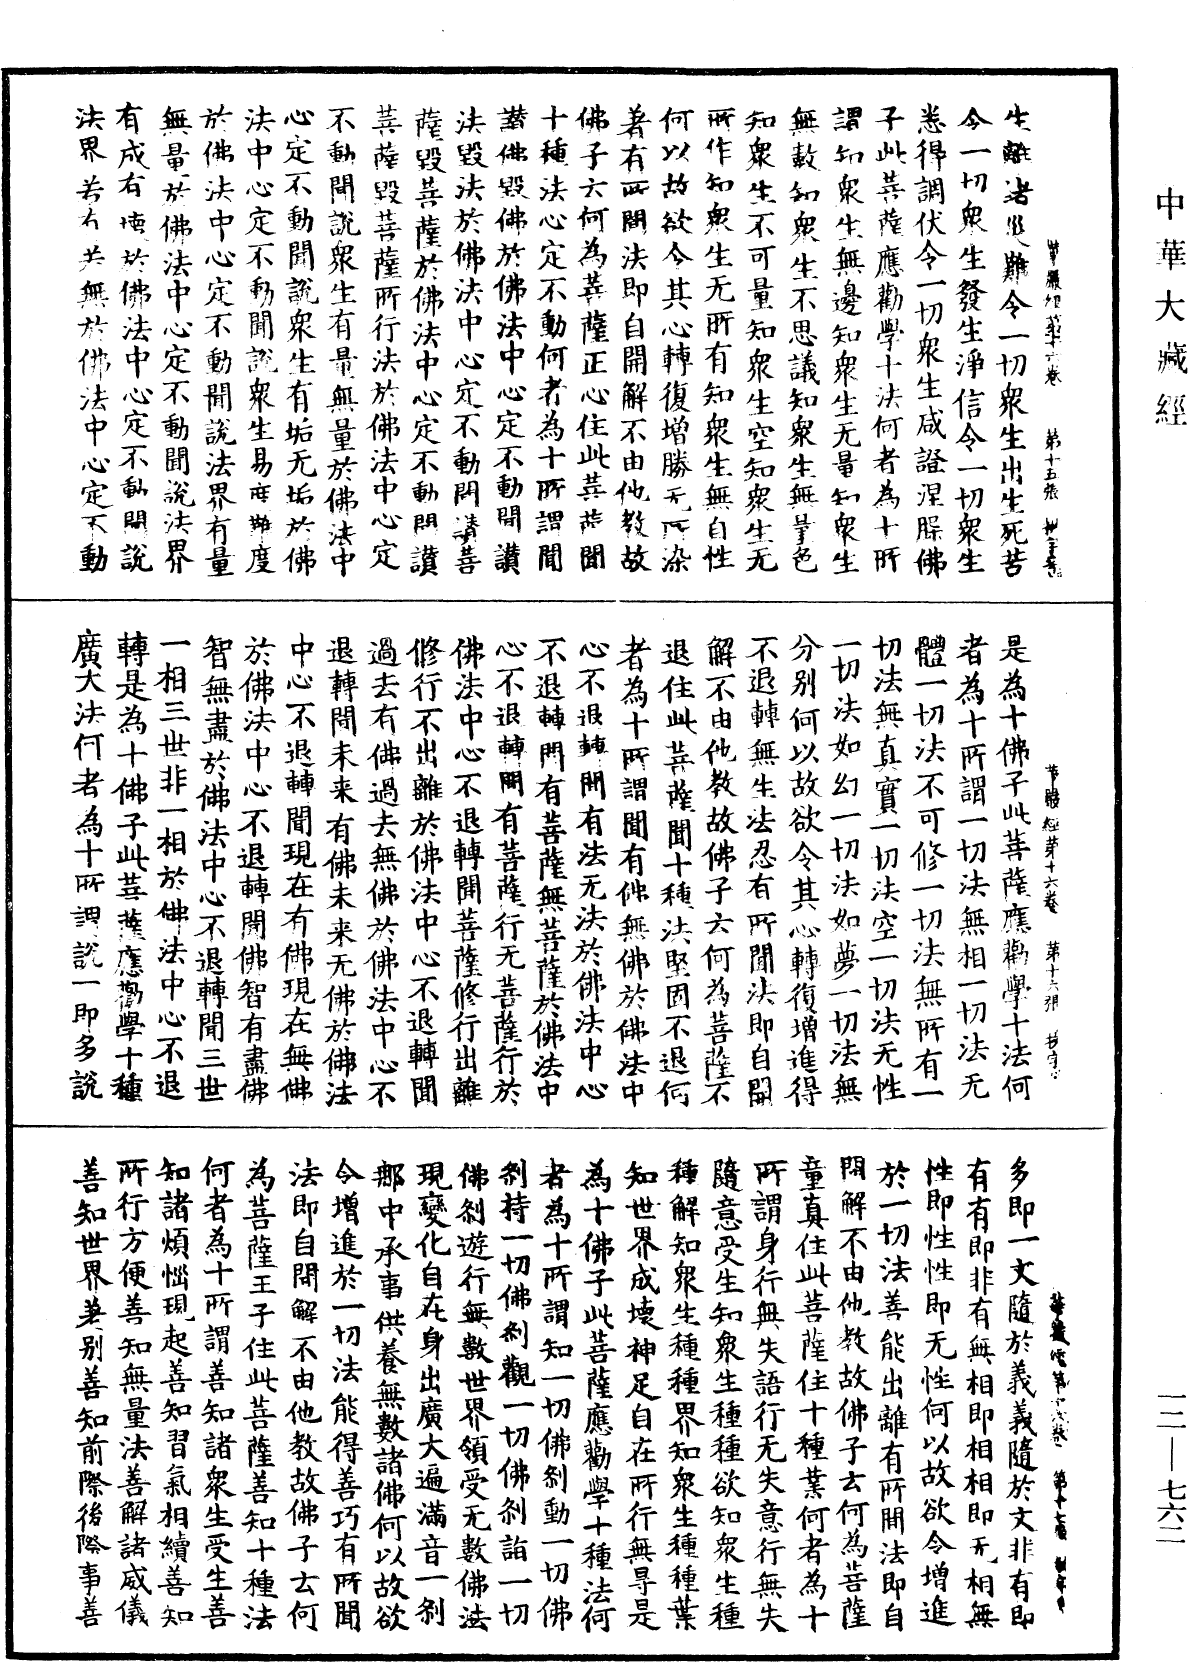 中華大藏經
一二—七六二
華嚴經第十六卷 第十五張
生離諸災難令一切衆生出生死苦
令一切衆生發生淨信令一切衆生
悉得調伏令一切衆生咸證涅脲佛
子此菩薩應勸學十法何者為十所
謂知衆生無邊知衆生无量知衆生
無數知衆生不思議知衆生無量色
知衆生不可量知衆生空知衆生无
所作知衆生无所有知衆生無自性
何以故欲令其心轉復增勝无所染
著有所聞法即自開解不由他教故
佛子云何為菩薩正心住此菩薩聞
十種法心定不動何者為十所謂聞
讚佛毀佛於佛法中心定不動聞讚
法毀法於佛法中心定不動聞讚菩
薩毀菩薩於佛法中心定不動聞讚
菩薩毀菩薩所行法於佛法中心定
不動聞說衆生有量無量於佛法中
心定不動聞說衆生有垢无垢於佛
法中心定不動聞說衆生易度難度
於佛法中心定不動聞說法界有量
無量於佛法中心定不動聞說法界
有成有壞於佛法中心定不動聞說
法界若有若無於佛法中心定不動
華嚴經第十六卷 第十六張
是為十佛子此菩薩應勸學十法何
者為十所謂一切法無相一切法无
體一切法不可修一切法無所有一
切法無真實一切法空一切法无性
一切法如幻一切法如夢一切法無
分別何以故欲令其心轉復增進得
不退轉無生法忍有所聞法即自開
解不由他教故佛子云何為菩薩不
退住此菩薩聞十種法堅固不退何
者為十所謂聞有佛無佛於佛法中
心不退轉聞有法无法於佛法中心
不退轉聞有菩薩無菩薩於佛法中
心不退轉聞有菩薩行无菩薩行於
佛法中心不退轉聞菩薩修行出離
修行不出離於佛法中心不退轉聞
過去有佛過去無佛於佛法中心不
退轉聞未来有佛未来无佛於佛法
中心不退轉聞現在有佛現在無佛
於佛法中心不退轉聞佛智有盡佛
智無盡於佛法中心不退轉聞三世
一相三世非一相於佛法中心不退
轉是為十佛子此菩薩應勸學十種
廣大法何者為十所謂說一即多說
華嚴經第十六卷 第十七張
多即一文隨於義義隨於文非有即
有有即非有無相即相相即无相無
性即性性即无性何以故欲令增進
於一切法善能出離有所聞法即自
開解不由他教故佛子云何為菩薩
童真住此菩薩住十種業何者為十
所謂身行無失語行无失意行無失
隨意受生知衆生種種欲知衆生種
種解知衆生種種界知衆生種種業
知世界成壞神足自在所行無㝵是
為十佛子此菩薩應勸學十種法何
者為十所謂知一切佛刹動一切佛
刹持一切佛刹觀一切佛刹詣一切
佛刹遊行無數世界領受无數佛法
現變化自在身出廣大遍滿音一刹
那中承事供養無數諸佛何以故欲
令增進於一切法能得善巧有所聞
法即自開解不由他教故佛子云何
為菩薩王子住此菩薩善知十種法
何者為十所謂善知諸衆生受生善
知諸煩惱現起善知習氣相續善知
所行方便善知無量法善解諸威儀
善知世界差別善知前際後際事善